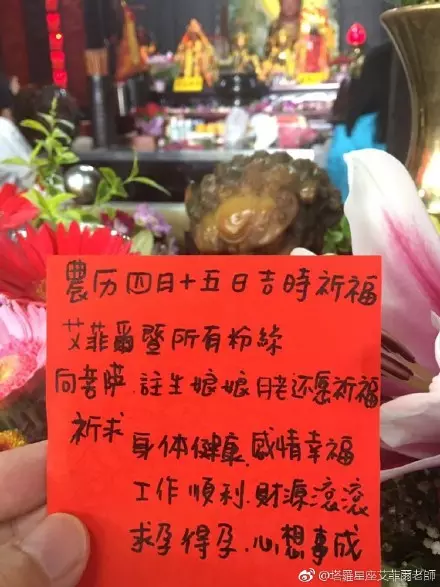 農历四月十五日吉時祈福
艾菲爾暨所有粉絲
向菩萨.註生娘娘月老还愿祈福
祈求
身体健康.感情幸福
工作順利.財源滾滾
求孕得孕.心想事成
@塔羅星座艾菲爾老師